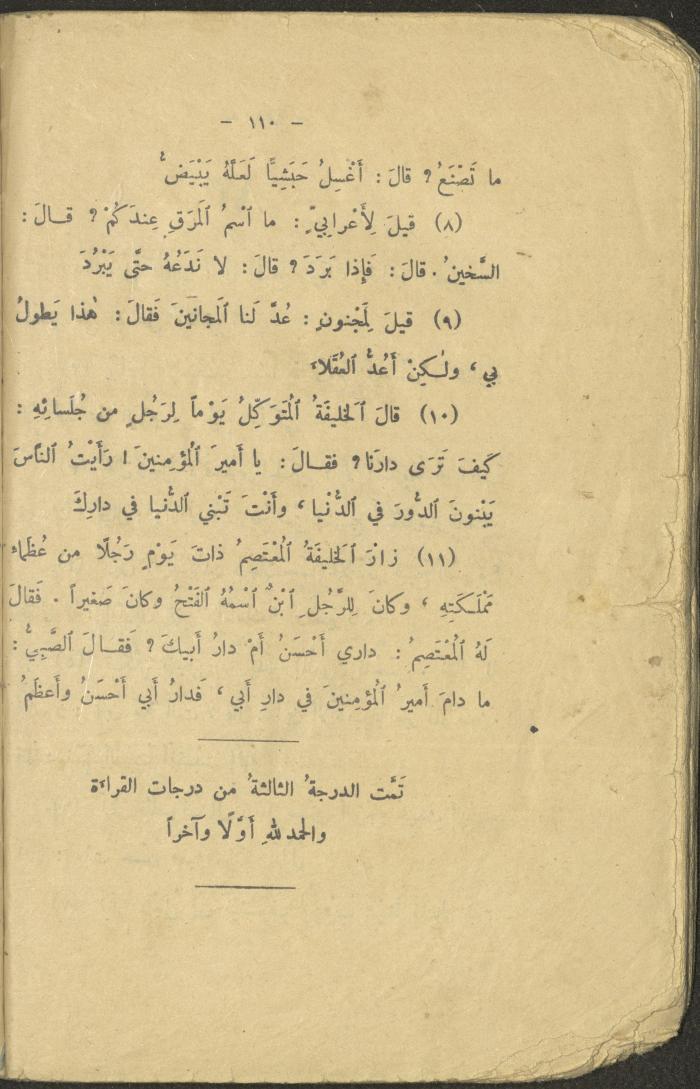 - ١١٠ -
ما تَصْنَعُ؟ قالَ: أَغْسِلُ حَبَشِيًّا لَعَلَّهُ يَبْيَضُّ
(٨) قيلَ لِأَعْرابِيٍّ: ما ٱسْمُ ٱلْمَرَقِ عِندَكُمْ؟ قالَ:
السَّخينُ. قالَ: فَإِذا بَرَدَ؟ قالَ: لا نَدَعُهُ حتَّى يَبْرُدَ
(٩) قيلَ لِمَجْنونٍ: عُدَّ لَنا ٱلمَجانينَ فَقالَ: هٰذا يَطولُ
بي، ولٰكِنْ أَعُدُّ ٱلعُقَلاءَ
(١٠) قالَ ٱلخَليفَةُ ٱلْمُتَوَكِّلُ يَوْماً لِرَجُلٍ من جُلَسائِهِ:
كَيفَ تَرَى دارَنا؟ فقالَ: يا أَميرَ ٱلْمُؤمِنينَ! رَأَيْتُ ٱلنَّاسَ
يَبْنونَ ٱلدُّورَ في ٱلدُّنْيا، وأَنْتَ تَبْني ٱلدُّنيا في دارِكَ
(١١) زارَ ٱلخَليفَةُ ٱلْمُعْتَصِمُ ذاتَ يَوْمٍ رَجُلًا من عُظَماءِ
مَمْلَكَتِهِ، وكانَ لِلرَّجُلِ ٱبْنٌ ٱسْمُهُ ٱلفَتْحُ وكانَ صَغيراً. فَقالَ
لَهُ ٱلْمُعْتَصِمُ: داري أَحْسَنُ أَمْ دارُ أَبيكَ؟ فَقالَ ٱلصَّبِيُّ:
ما دامَ أَميرُ ٱلْمُؤمِنينَ في دارِ أَبي، فَدارُ أَبي أَحْسَنُ وأَعظَمُ
تَمَّت الدرجةُ الثالثةُ من درجات القراءة
والحمد للهِ أَوَّلًا وآخراً